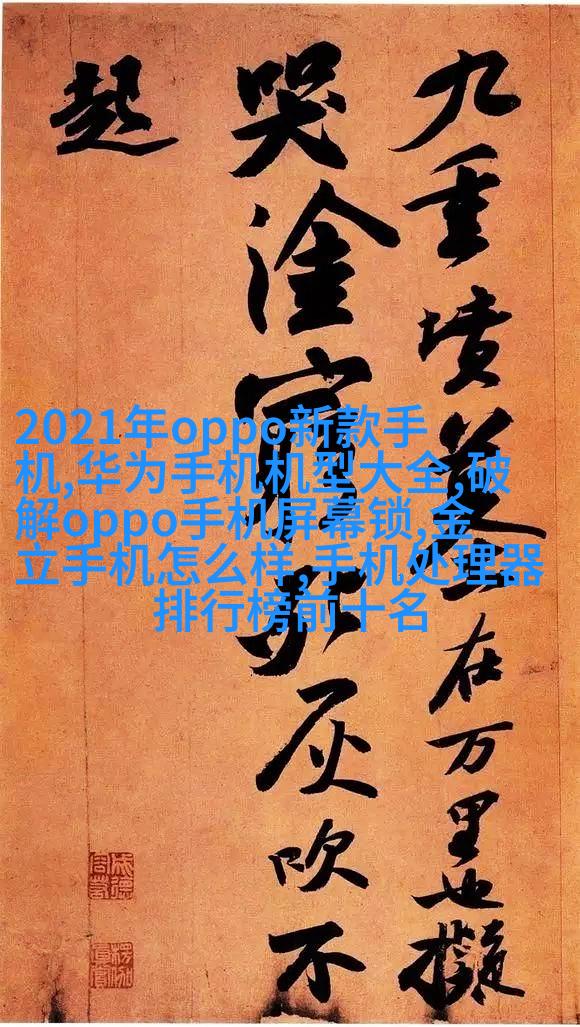 九重墳墓在万里也擬
哭塗窮死灰吹不
起
2021年oppo新款手
机,华为手机机型大全,破
解oppo手机屏幕锁,金
立手机怎么样,手机处理器
排行榜前十名
成德
容若
楞伽
真實